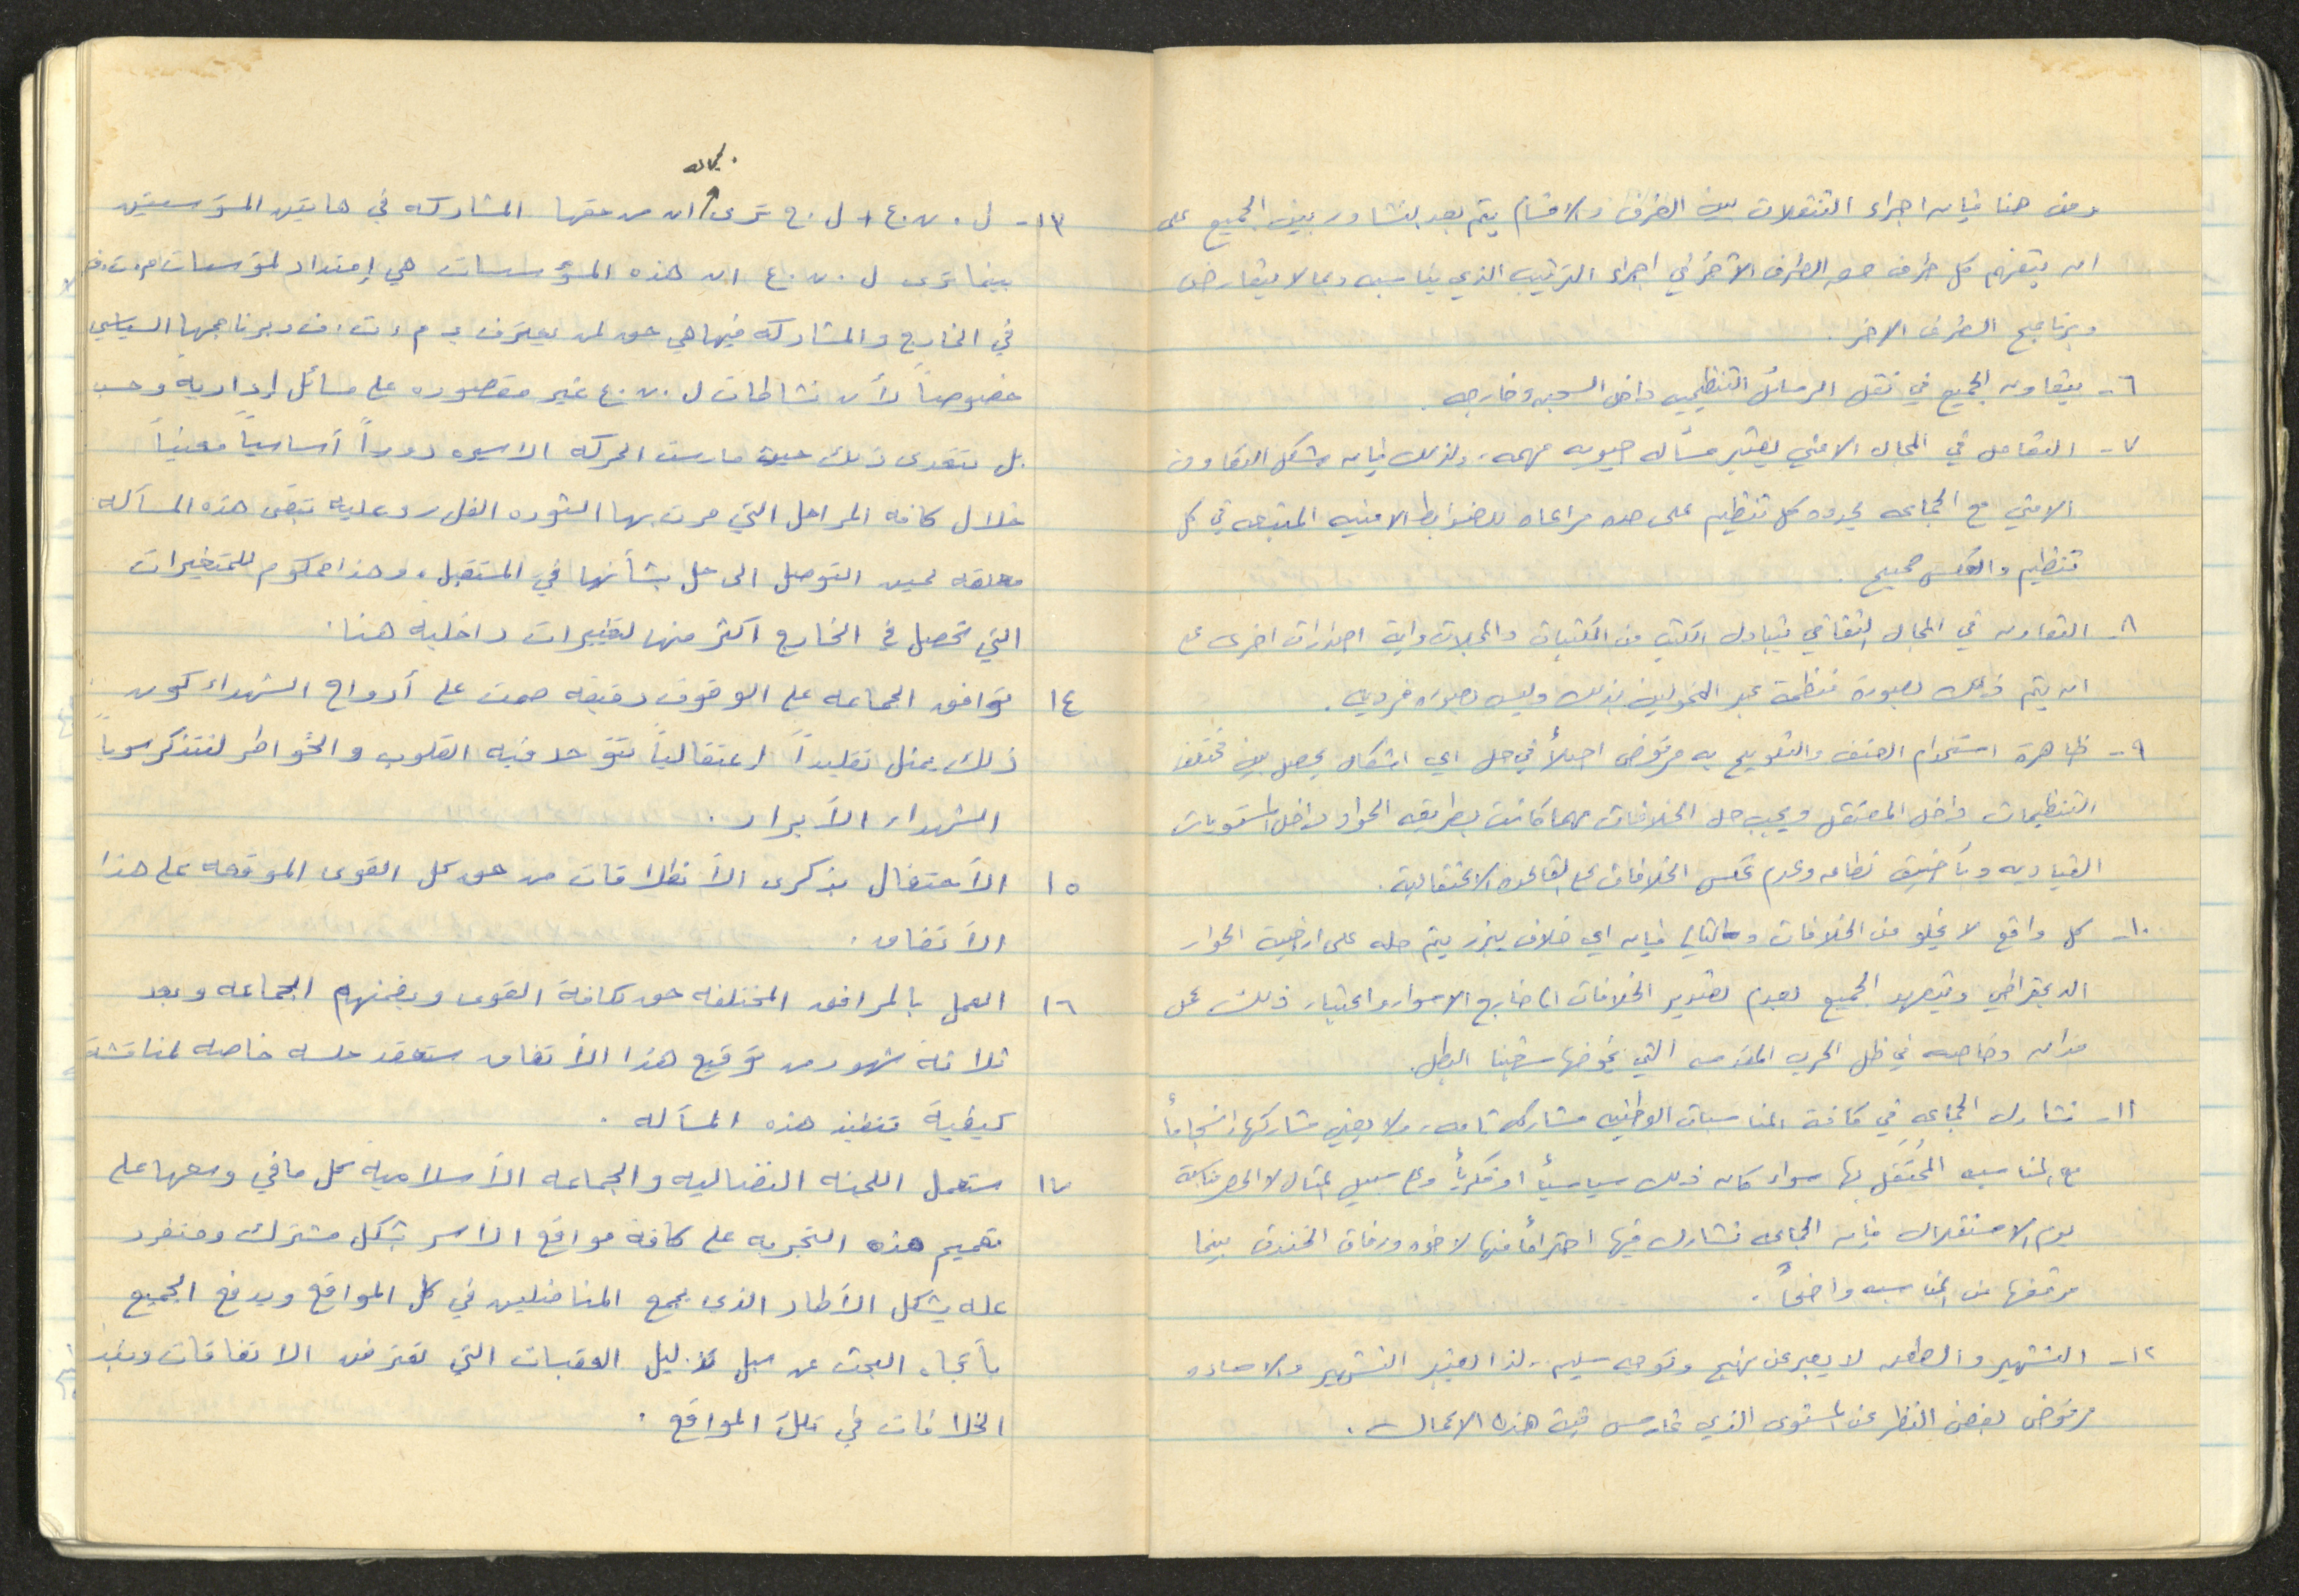 ومن هنا فإن اجراء التنقلات بين الغرف والاقسام يتم بعد التشاور بين الجميع على
ان يتفهم كل طرف حق الطرف الآخر في اجراء الترتيب الذي يناسبه وبما لا يتعارض
وبرنامج الطرف الاخر.
٦- يتعاون الجميع في نقل الرسائل التنظيميه داخل السجن وخارجه.
٧- التعامل في المجال الامني يعتبر مسأله حيويه مهمه، ولذلك فإن شكل التعاون
الامني مع الجماعه يحدده كل تنظيم على حده مراعاه للضوابط الامنيه المتبعه في كل
تنظيم والعكس صحيح.
٨- التعاون في المجال الثقافي بتبادل الكتب من المكتبات والمجلات واية اصدارات اخرى على
ان يتم ذلك بصورة منظمة عبر المخولين بذلك وليس بصوره فرديه.
٩- ظاهرة استخدام العنف والتلويح به مرفوض اصلاً في حل اي اشكال يحصل بين مختلف
التنظيمات داخل المعتقل ويجب حل الخلافات مهما كانت بطريقه الحوار داخل المستويات
القياديه وبأضيق نطاق وعدم عكس الخلافات على القاعده الاعتقالية.
١٠- كل واقع لا يخلو من الخلافات وبالتالي فإن اي خلاف يبرز يتم حله على ارضية الحوار
الديمقراطي ويتعهد الجميع بعدم تصدير الخلافات الى خارج الاسوار واعتبار ذلك عمل
مدان وخاصه في ظل الحرب المقدسه التي يخوضها شعبنا البطل.
١١- تشارك الجماعه في كافة المناسبات الوطنيه مشاركه تامه، ولا يعني مشاركتها انسجاماً
مع المناسبه المُحتَفَل بها سواء كان ذلك سياسياً او فكرياً وعلى سبيل المثال لا الحصر مناسبة
يوم الاستقلال فإن الجماعه تشارك فيها احتراماً منها لاخوه ورفاق الخندق بينما
موقفها من المناسبه واضحاً.
١٢- التشهير والطعن لا يعبر عن نهج وتوجه سليم، لذا يعتبر التشهير والاساءه
مرفوض بغض النظر عن المستوى الذي تمارس فيه هذه الاعمال.
١٣- ل.ن.ع + ل.ج ترى ان من حقها المشاركه في هاتين المؤسستين
بينما ترى ل.ن.ع ان هذه المؤسسات هي إمتداد لمؤسسات م.ت.ف
في الخارج والمشاركه فيها هي حق لمن يعترف بـ م.ت.ف وبرنامجها السياسي
خصوصاً لأن نشاطات ل.ن.ع غير مقصوره على مسائل إداريه وحسب
بل تتعدى ذلك حيث مارست الحركه الاسيره دوراً أساسياً معيناً
خلال كافه المراحل التي مرت بها الثوره الفل.. وعليه تبقى هذه المسأله
معلقه لحين التوصل الى حل بشأنها في المستقبل، وهذا محكوم للمتغيرات
التي تحصل في الخارج اكثر منها لتغييرات داخليه هنا.
١٤ توافق الجماعه على الوقوف دقيقه صمت على أرواح الشهداء كون
ذلك يمثل تقليداً إعتقالياً تتوحد فيه القلوب والخواطر لنتذكر سوياً
الشهداء الأبرار.
١٥ الأحتفال بذكرى الأنطلاقات من حق كل القوى الموقعه على هذا
الأتفاق.
١٦ العمل بالمرافق المختلفه حق لكافة القوى وبضمنهم الجماعه وبعد
ثلاثة شهور من توقيع هذا الأتفاق ستعقد جلسه خاصه لمناقشة
كيفية تنفيذ هذه المسأله.
١٧ ستعمل اللجنه النضاليه والجماعه الأسلاميه كل ما في وسعها على
تعميم هذه التجربه على كافة مواقع الأسر بشكل مشترك ومنفرد
عله يشكل الأطار الذى يجمع المناضلين في كل المواقع ويدفع الجميع
بأتجاه البحث عن سبل تذليل العقبات التي تعترض الاتفاقات ونبذ
الخلافات في تلك المواقع.